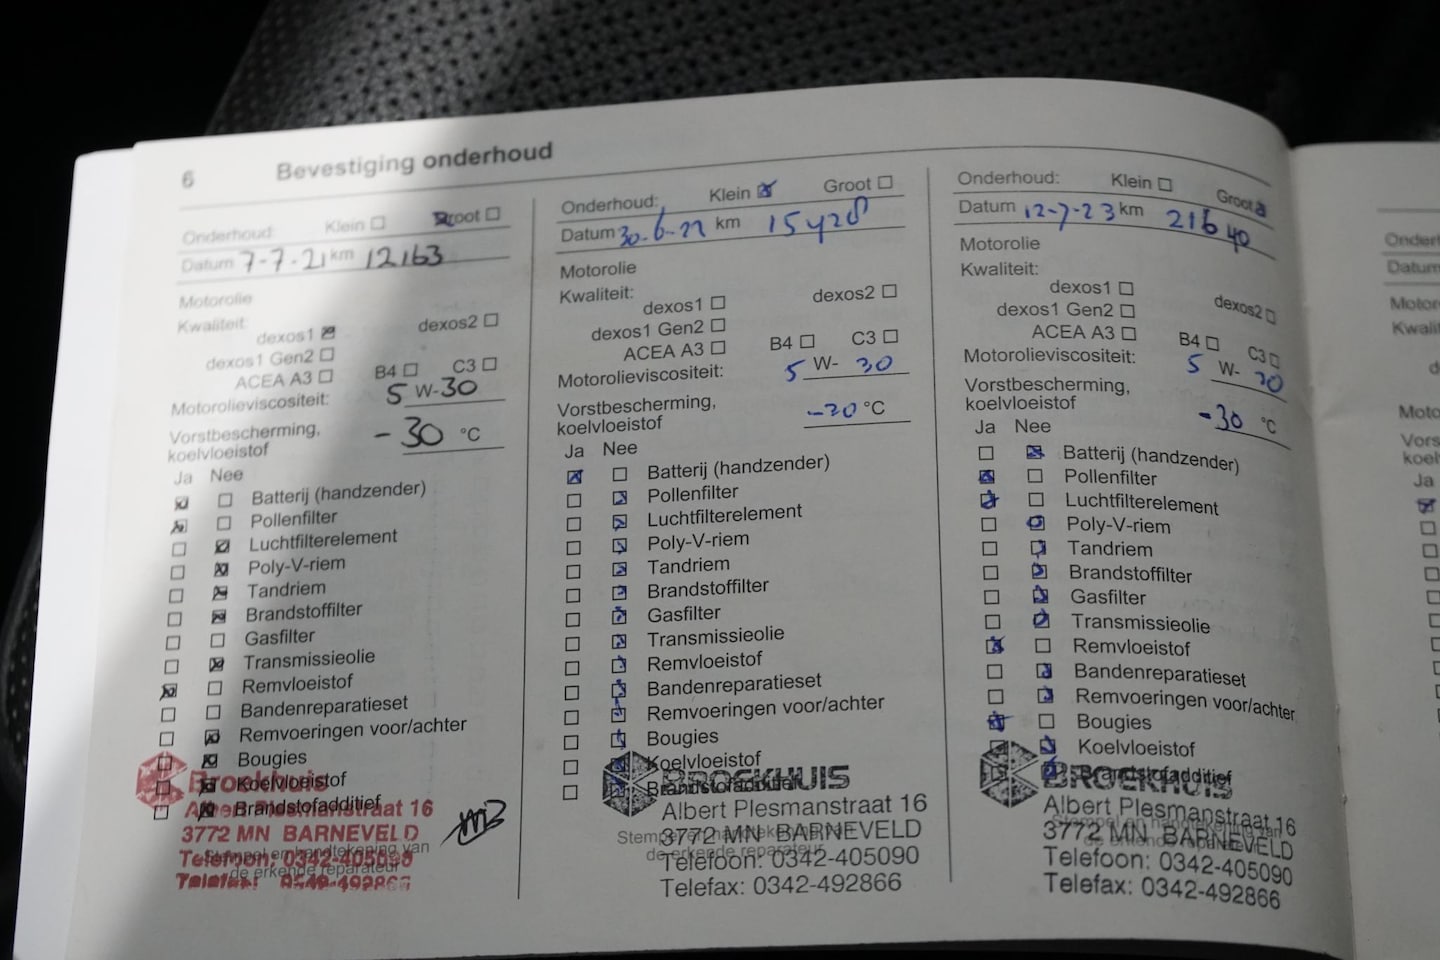 6 Bevestiging onderhoud
Onderhoud: Klein Groot
Datum 7-7-21 km 12163
Motorolie
Kwaliteit:
dexos1 dexos2
dexos1 Gen2
ACEA A3 B4 C3
Motorolieviscositeit: 5 W-30
Vorstbescherming,
koelvloeistof -30 °C
Ja Nee
Batterij (handzender)
Pollenfilter
Luchtfilterelement
Poly-V-riem
Tandriem
Brandstoffilter
Gasfilter
Transmissieolie
Remvloeistof
Bandenreparatieset
Remvoeringen voor/achter
Bougies
Koelvloeistof
Brandstofadditief
Broekhuis
Albert Plesmanstraat 16
3772 MN BARNEVELD
Telefoon: 0342-405090
Stempel en handtekening van
de erkende reparateur
Onderhoud: Klein Groot
Datum 30-6-22 km 15428
Motorolie
Kwaliteit:
dexos1 dexos2
dexos1 Gen2
ACEA A3 B4 C3
Motorolieviscositeit: 5 W- 30
Vorstbescherming,
koelvloeistof °C
Ja Nee
Batterij (handzender)
Pollenfilter
Luchtfilterelement
Poly-V-riem
Tandriem
Brandstoffilter
Gasfilter
Transmissieolie
Remvloeistof
Bandenreparatieset
Remvoeringen voor/achter
Bougies
Koelvloeistof
Brandstofadditief
BROEKHUIS
Albert Plesmanstraat 16
3772 MN BARNEVELD
Stempel en handtekening van
de erkende reparateur
Telefoon: 0342-405090
Telefax: 0342-492866
Onderhoud: Klein Groot
Datum 12-7-23 km 21640
Motorolie
Kwaliteit:
dexos1 dexos2
dexos1 Gen2
ACEA A3 B4 C3
Motorolieviscositeit: 5 W- 30
Vorstbescherming,
koelvloeistof -30 °C
Ja Nee
Batterij (handzender)
Pollenfilter
Luchtfilterelement
Poly-V-riem
Tandriem
Brandstoffilter
Gasfilter
Transmissieolie
Remvloeistof
Bandenreparatieset
Remvoeringen voor/achter
Bougies
Koelvloeistof
Brandstofadditief
BROEKHUIS
Albert Plesmanstraat 16
3772 MN BARNEVELD
Stempel en handtekening van
de erkende reparateur
Telefoon: 0342-405090
Telefax: 0342-492866
Datum
Ja